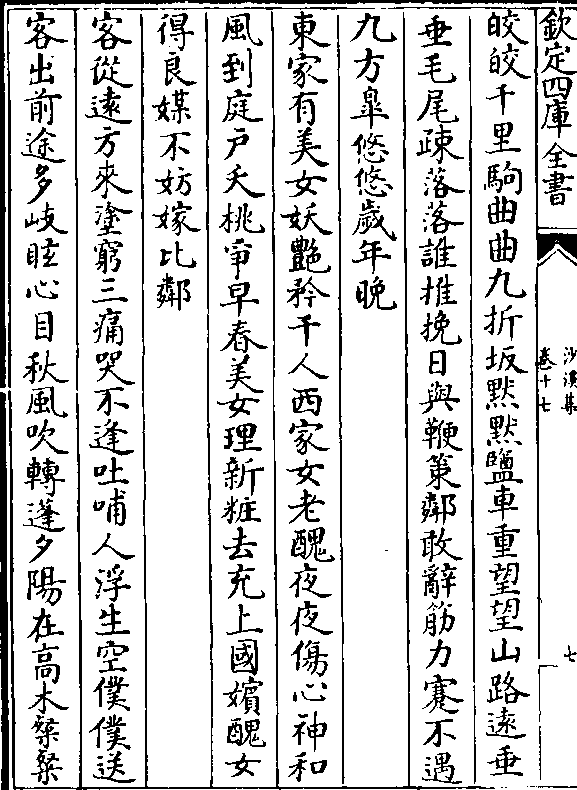 欽定四庫全書
沙溪集
卷十七
七
皎皎千里駒曲曲九折坂默默鹽車重望望山路遠垂
垂毛尾疎落落誰推挽日與鞭策鄰敢辭筋力蹇不遇
九方臯悠悠歲年晚
東家有美女妖艷矜千人西家女老醜夜夜傷心神和
風到庭戸夭桃爭早春美女理新粧去充上國嬪醜女
得良媒不妨嫁比鄰
客從遠方來塗窮三痛哭不逢吐哺人浮生空僕僕送
客出前途多岐眩心目秋風吹轉蓬夕陽在高木粲粲